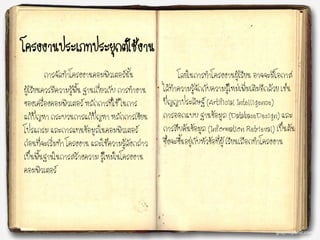 โครงงานประเภทประยุกต์ใช้งาน
การจัดทำโครงงานคอมพิวเตอร์นั้น
ผู้เรียนควรมีความรู้พื้น ฐานเกี่ยวกับ การทำงาน
ของเครื่องคอมพิวเตอร์ หลักการที่ใช้ในการ
แก้ปัญหา กระบวนการแก้ปัญหา หลักการเขียน
โปรแกรม และการแทนข้อมูลในคอมพิวเตอร์
ก่อนที่จะเริ่มทำ โครงงาน และใช้ความรู้ดังกล่าว
เป็นพื้นฐานในการสร้างความ รู้ใหม่ในโครงงาน
คอมพิวเตอร์
โดยในการทำโครงงานผู้เรียน อาจจะมีโอกาส
ได้ทำความรู้จักกับความรู้ใหม่เพิ่มเติมอีกด้วย เช่น
ปัญญาประดิษฐ์ (Artificial Intelligence)
การออกแบบ ฐานข้อมูล (DatabaseDesign) และ
การสืบค้นข้อมูล (Information Retrieval) เป็นต้น
ซึ่งจะขึ้นอยู่กับหัวข้อที่ผู้ เรียนเลือกทำโครงงาน